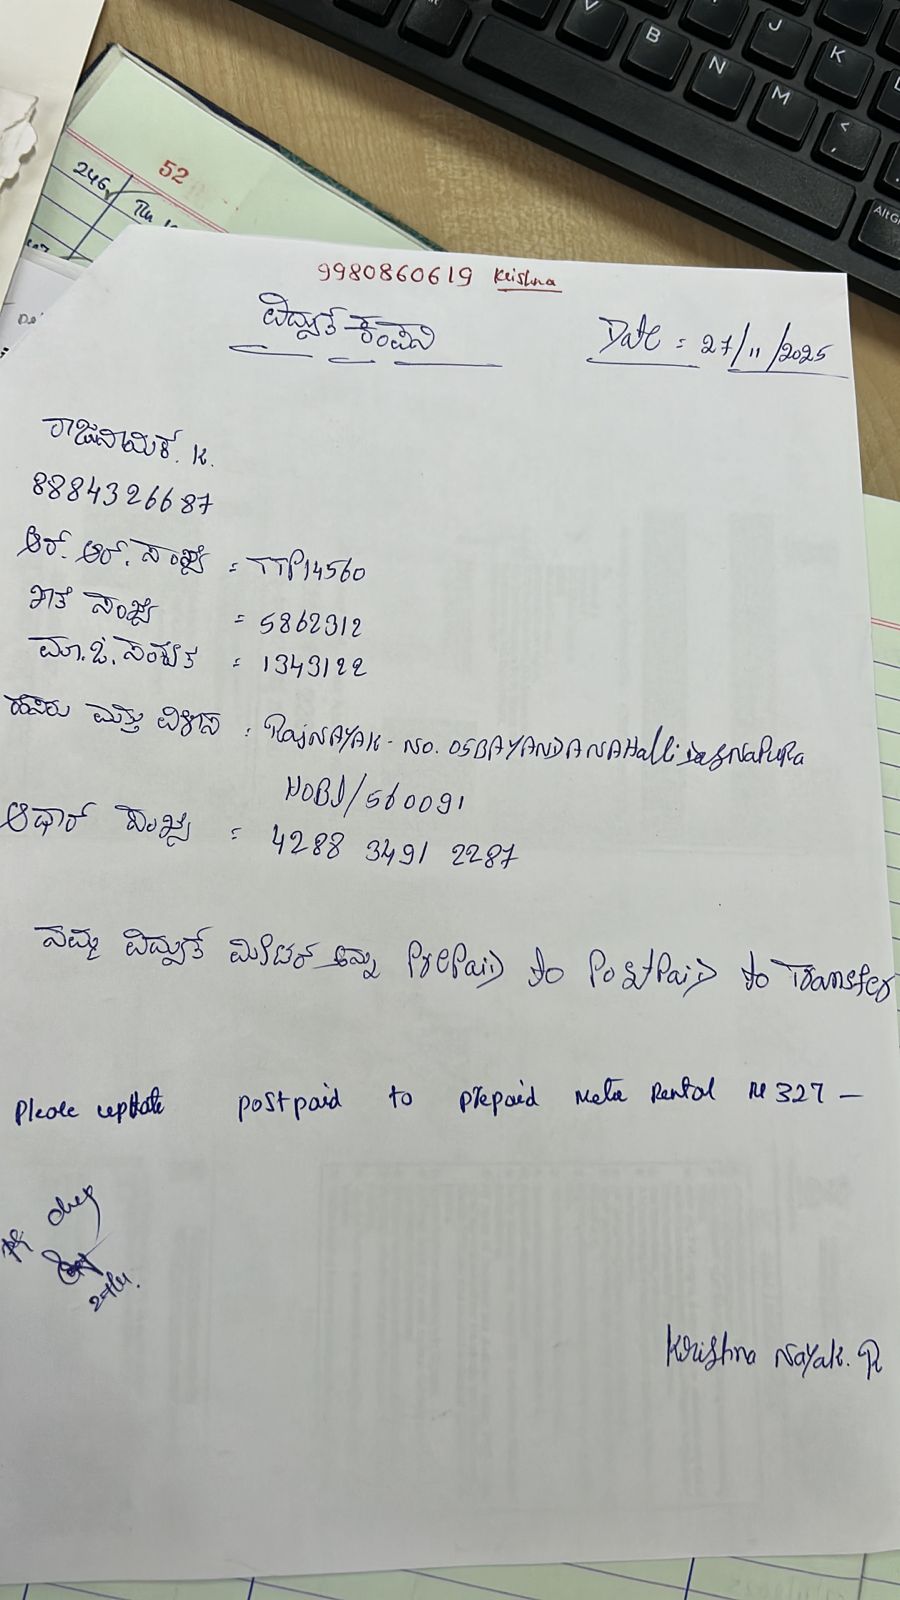 52
246
9980860619 Krishna
ವಿದ್ಯುತ್ ಕಂಪನಿ
Date = 27/11/2025
ರಾಜನಾಯಿಕ್. K.
8884326687
ಆರ್. ಆರ್. ಸಂಖ್ಯೆ = TTP14560
ಖಾತೆ ಸಂಖ್ಯೆ = 5862312
ಮಾ.ಓ. ಸಂಕೇತ = 1343122
ಹೆಸರು ಮತ್ತು ವಿಳಾಸ : RajNAYAK - NO. 05BAYANDANAHalli
HOBJ/560091
ಆಧಾರ್ ಸಂಖ್ಯೆ = 4288 3491 2287
ನಮ್ಮ ವಿದ್ಯುತ್ ಮೀಟರ್ ಅನ್ನು PrePaiD to PostPaiD to Transfer
Please update postpaid to prepaid Meter Rental 327 —
Krishna Nayak. R
B
N
M
J
K
V
<
,
AltGr